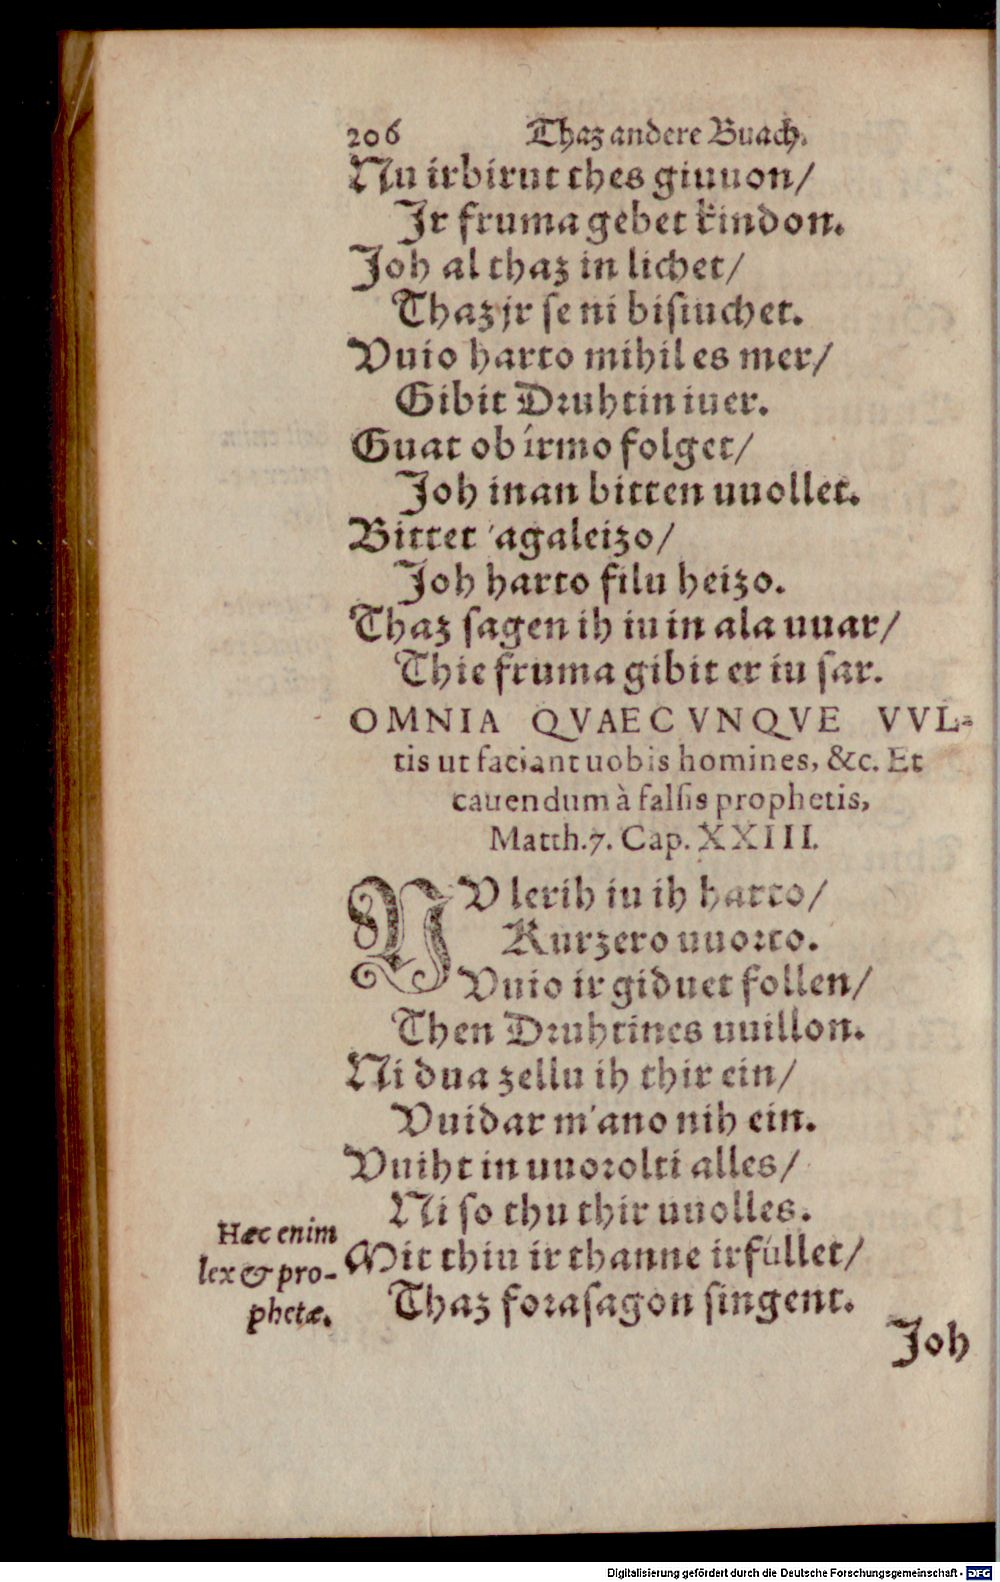 206 Thaz andere Buach.
Nu irbirut thes giuuon/
Jr fruma gebet kindon.
Joh al thaz in lichet/
Thaz jr se ni bisuichet.
Vuio harto mihil es mer/
Gibit Druhtin iuer.
Guat ob írmo folget/
Joh inan bitten uuollet.
Bittet 'agaleizo/
Joh harto filu heizo.
Thaz sagen ih iu in ala uuar/
Thie fruma gibit er iu sar.
OMNIA QVAECVNQVE VVL-
tis ut faciant uobis homines, &c. Et
cauendum à falsis prophetis,
Matth.7. Cap. XXIII.
NV lerih iu ih harto/
Kurzero uuorto.
Vuio ir giduet follen/
Then Druhtines uuillon.
Ni dua zellu ih thir ein/
Vuidar m'ano nih ein.
Vuiht in uuorolti alles/
Ni so thu thir uuolles.
Hæc enim
lex & pro-
phetæ.
Mit thiu ir thanne irfúllet/
Thaz forasagon singent.
Joh
Digitalisierung gefördert durch die Deutsche Forschungsgemeinschaft - DFG